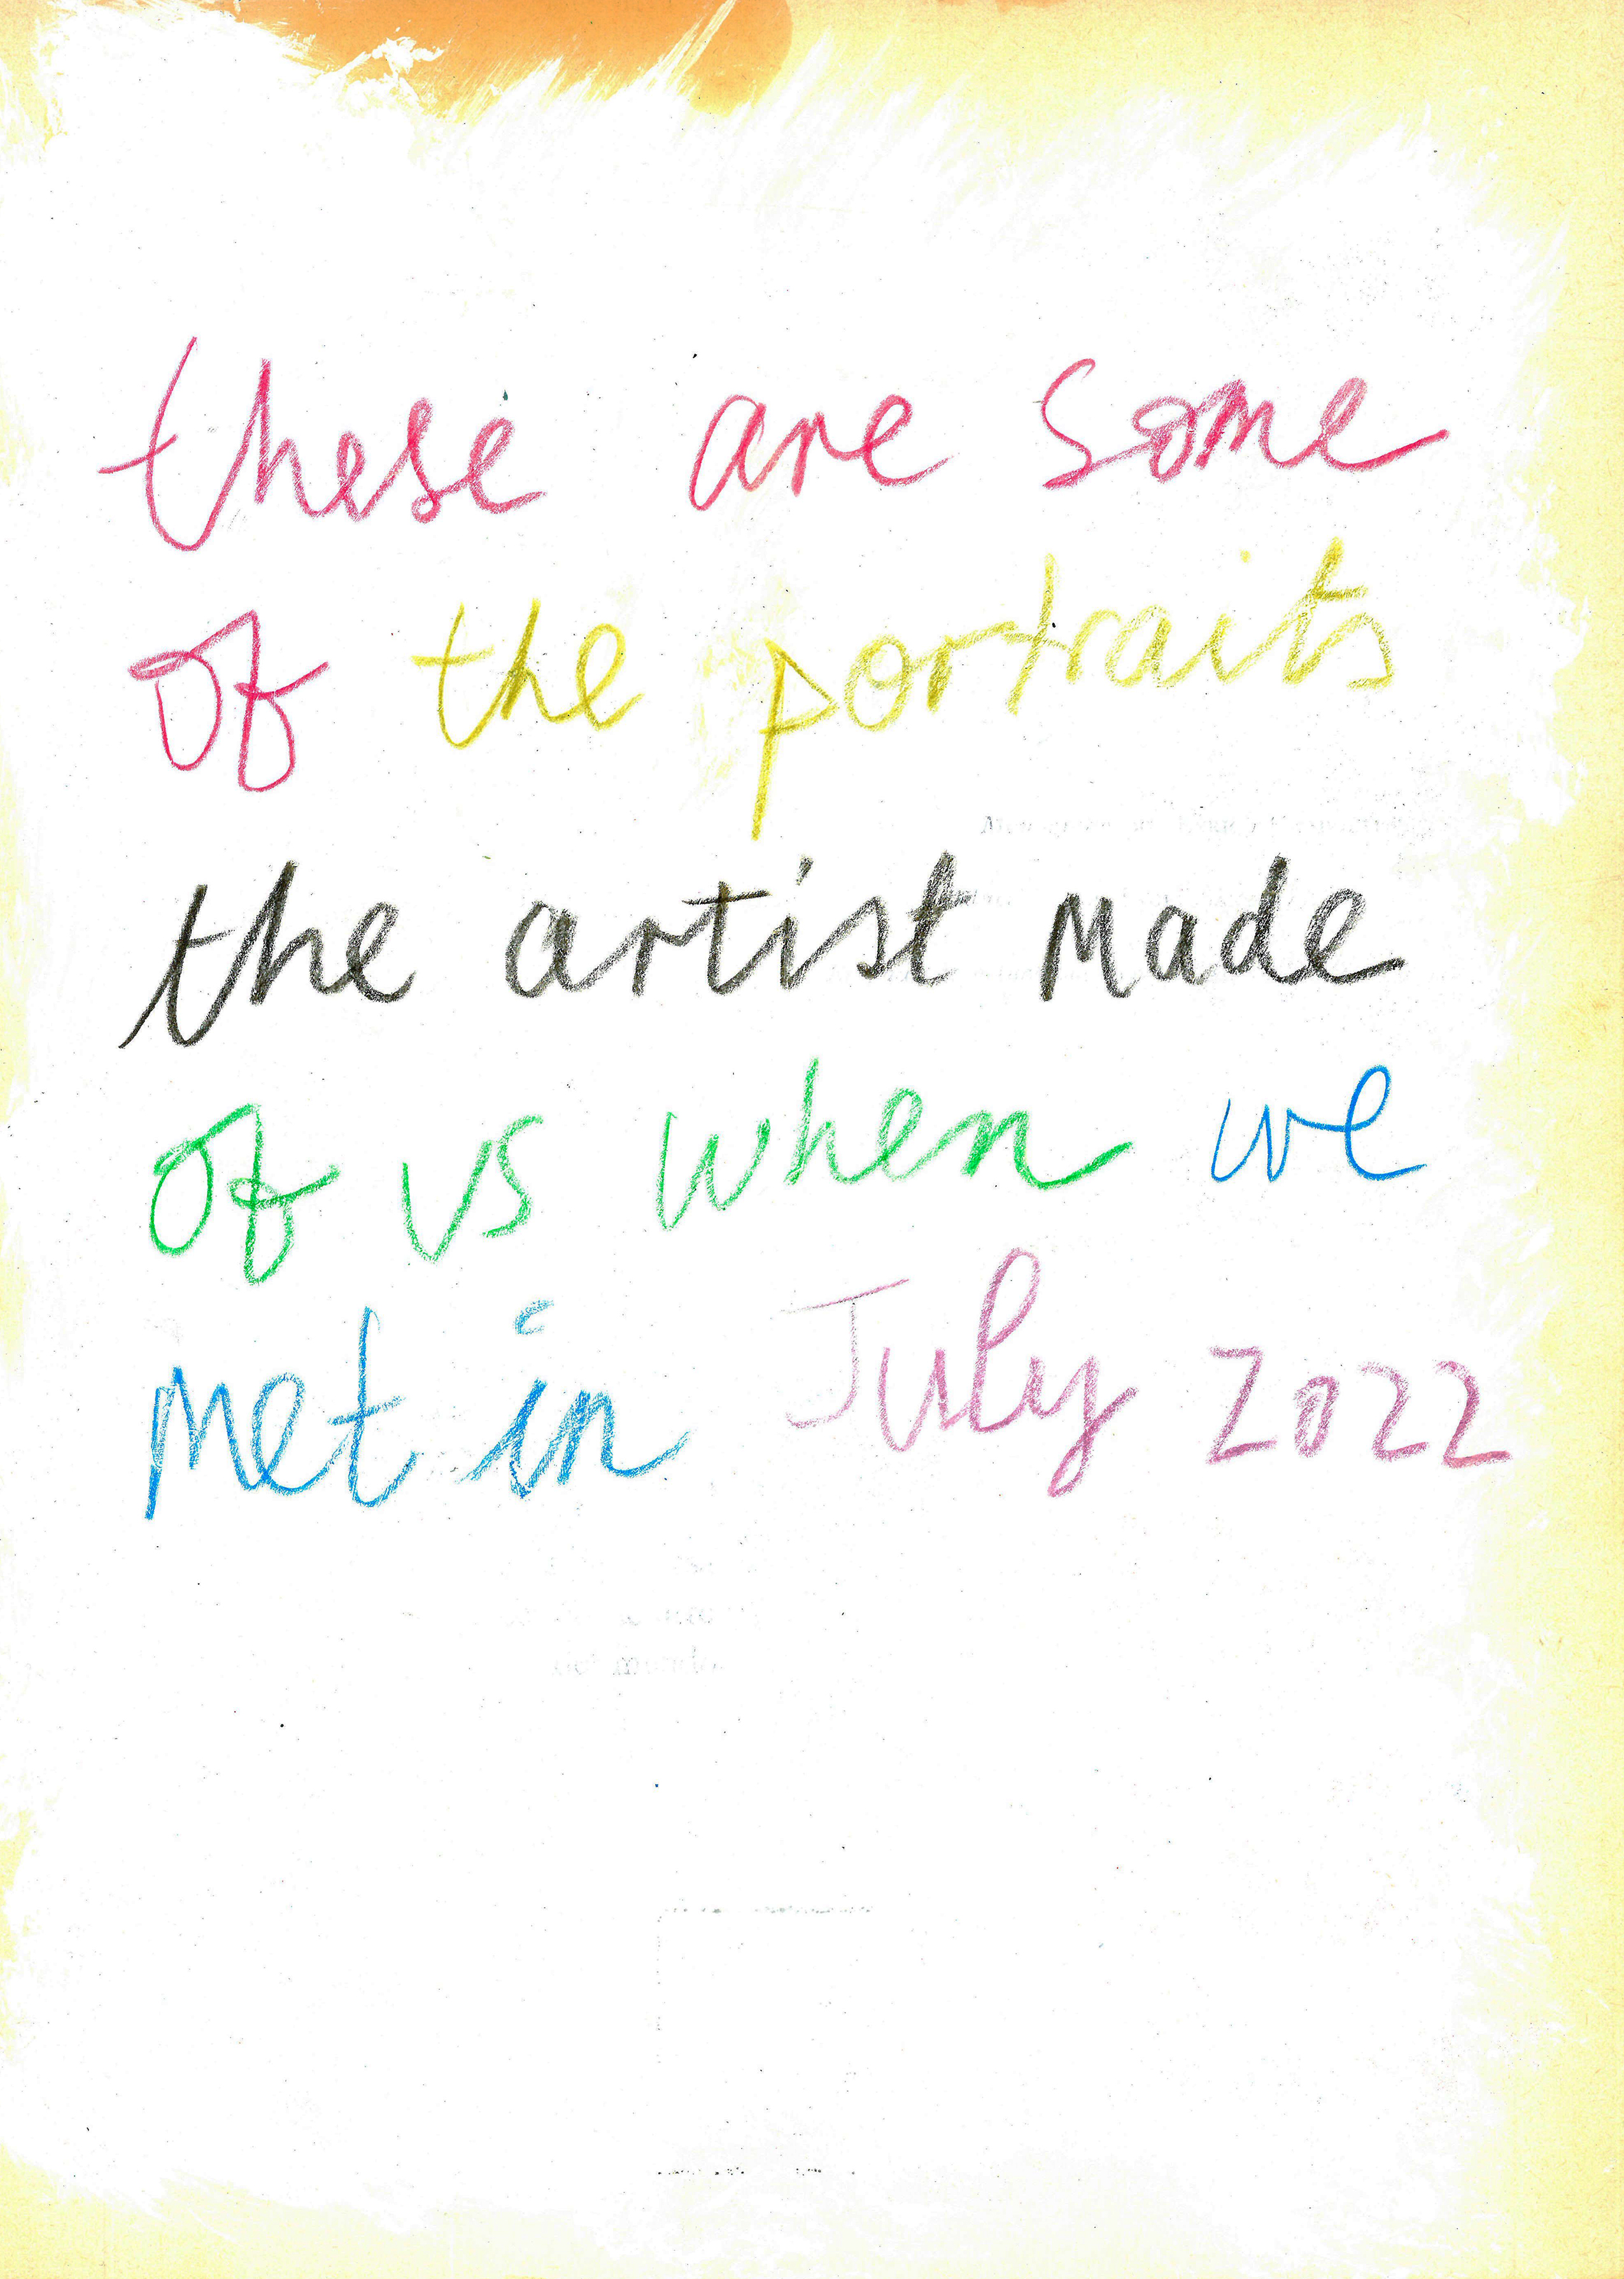 these are some
of the portraits
the artist made
of us when we
met in July 2022